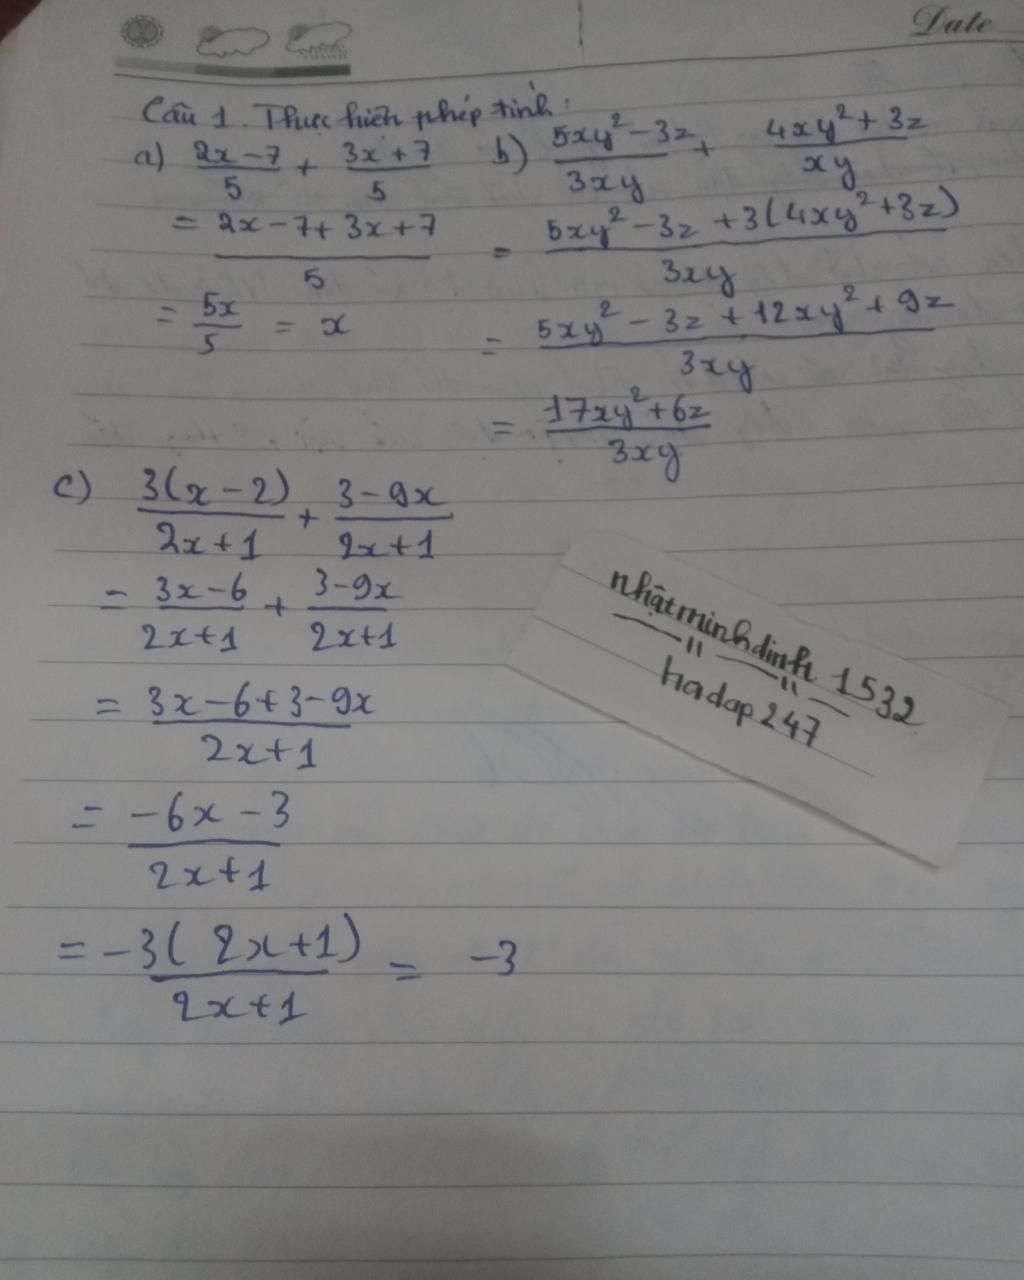 Date
Câu 1. Thực hiện phép tính:
a) (2x-7)/5 + (3x+7)/5
= (2x-7+3x+7)/5
= 5x/5 = x
b) (5xy²-3z)/(3xy) + (4xy²+3z)/(xy)
= (5xy²-3z+3(4xy²+3z))/(3xy)
= (5xy²-3z+12xy²+9z)/(3xy)
= (17xy²+6z)/(3xy)
c) 3(x-2)/(2x+1) + (3-9x)/(2x+1)
= (3x-6)/(2x+1) + (3-9x)/(2x+1)
= (3x-6+3-9x)/(2x+1)
= (-6x-3)/(2x+1)
= -3(2x+1)/(2x+1) = -3
nhậtminhdinh 1532
hadap247